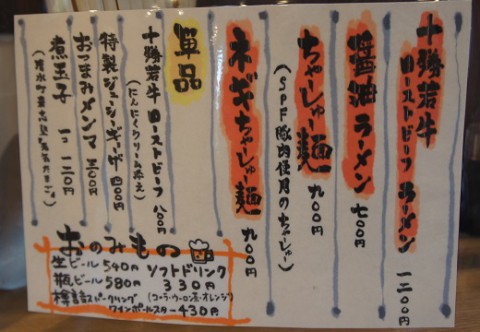 十勝若牛
ローストビーフラーメン 一二〇〇円
醤油ラーメン 七〇〇円
ちゃーしゅ麺 九〇〇円
(SPF豚肉使用のちゃーしゅー)
ネギちゃーしゅ麺 九〇〇円
単品
十勝若牛ローストビーフ 八〇〇円
(にんにくクリーム添え)
特製ジューシーギョーザ 四〇〇円
おつまみメンマ 三〇〇円
煮玉子 一コ 一二〇円
おのみもの
生ビール 540円
瓶ビール 580円
ソフトドリンク
330円
(コーラ・ウーロン茶・オレンジ)
スパークリング
ワインポールスター 430円